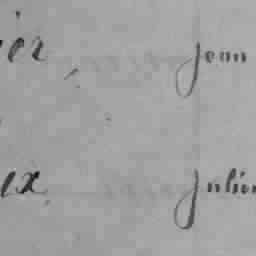 ier, jean
ex julien